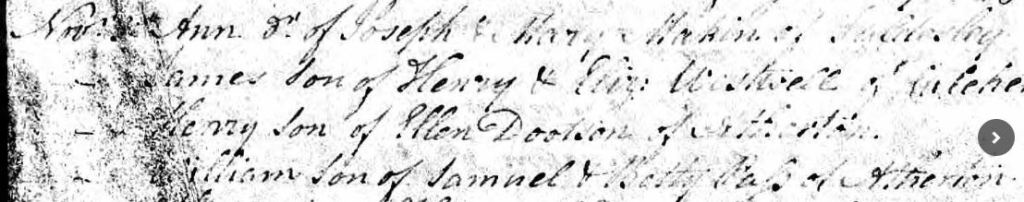 Novr Ann Dr of Joseph & Mary Makin of Tuldesley
James Son of Henry & Eliz Westwell of Culcheth
Henry Son of Ellen Dootson of Atherton.
William Son of Samuel & Betty Pass of Atherton